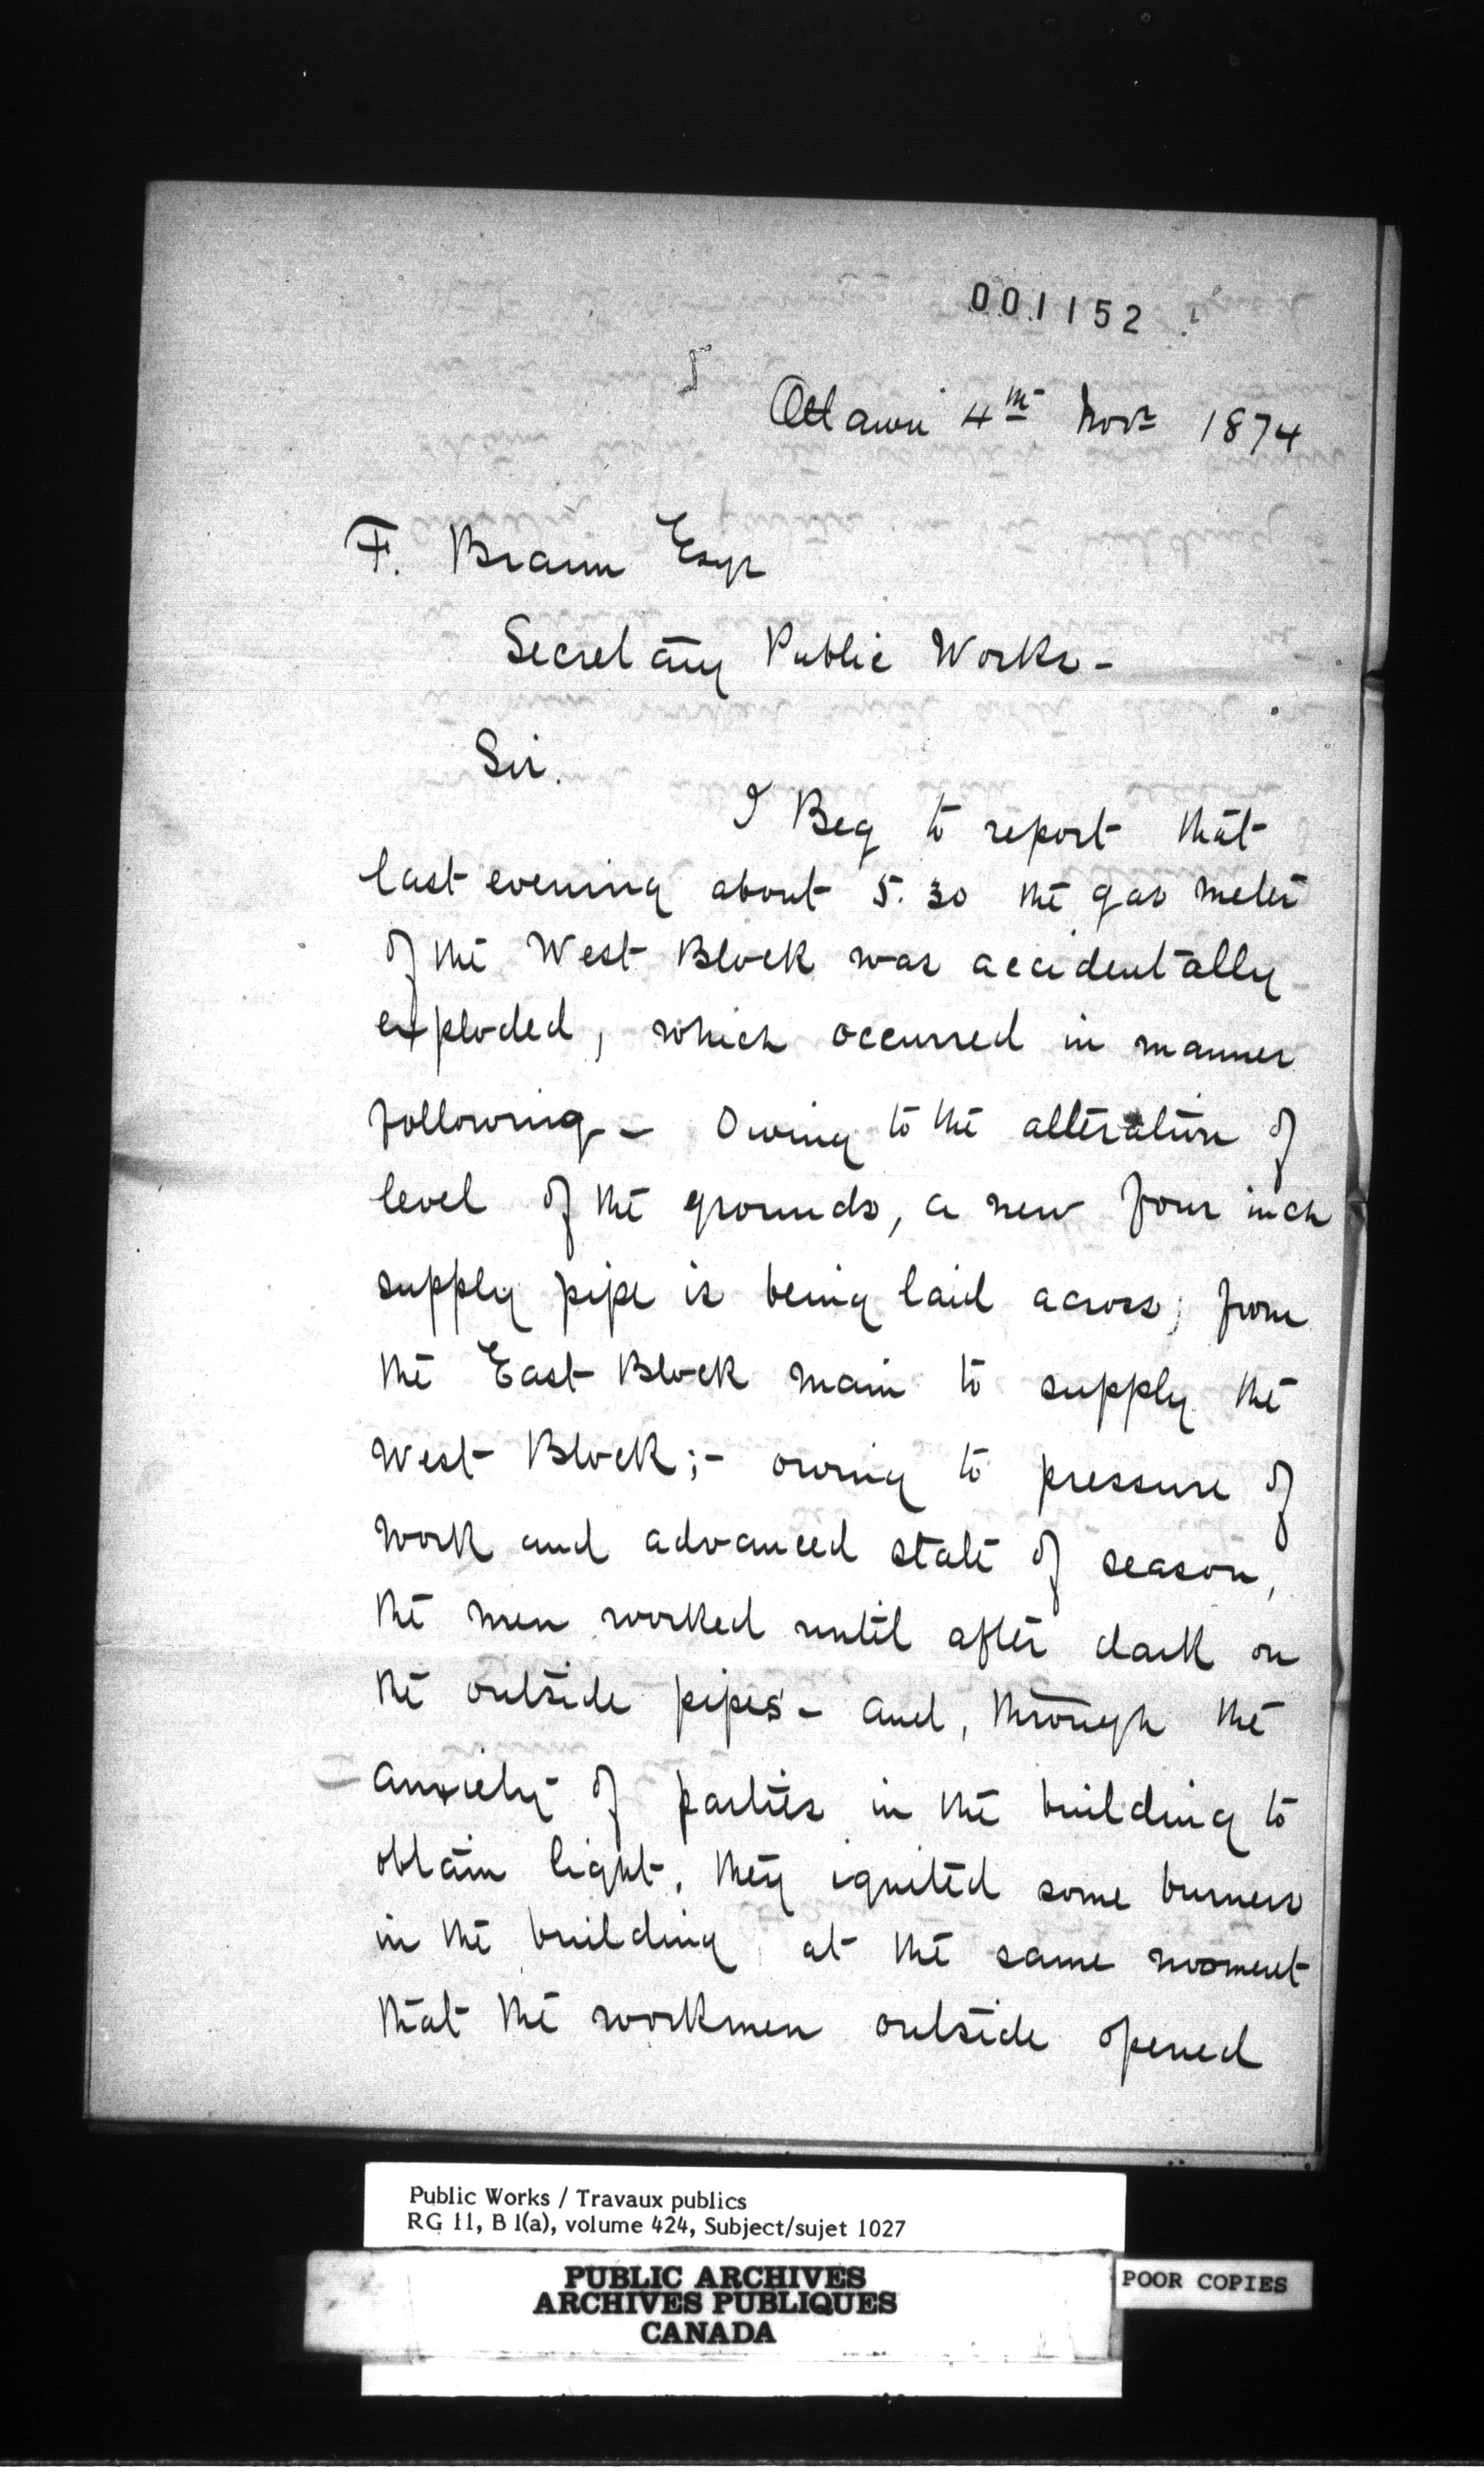 001152
Ottawa 4th Novr 1874
F. Braun Esqr
Secretary Public Works -
Sir.
I Beg to report that
last evening about 5.30 the gas meter
of the West Block was accidentally
exploded, which occurred in manner
following - Owing to the alteration of
level of the grounds, a new four inch
supply pipe is being laid across; from
the East Block main to supply the
West Block; - owing to pressure of
work and advanced state of season,
the men worked until after dark on
the outside pipes - and, through the
anxiety of parties in the building to
obtain light, they ignited some burners
in the building, at the same moment
that the workmen outside opened
Public Works / Travaux publics
RG 11, B 1(a), volume 424, Subject/sujet 1027
PUBLIC ARCHIVES
ARCHIVES PUBLIQUES
CANADA
POOR COPIES